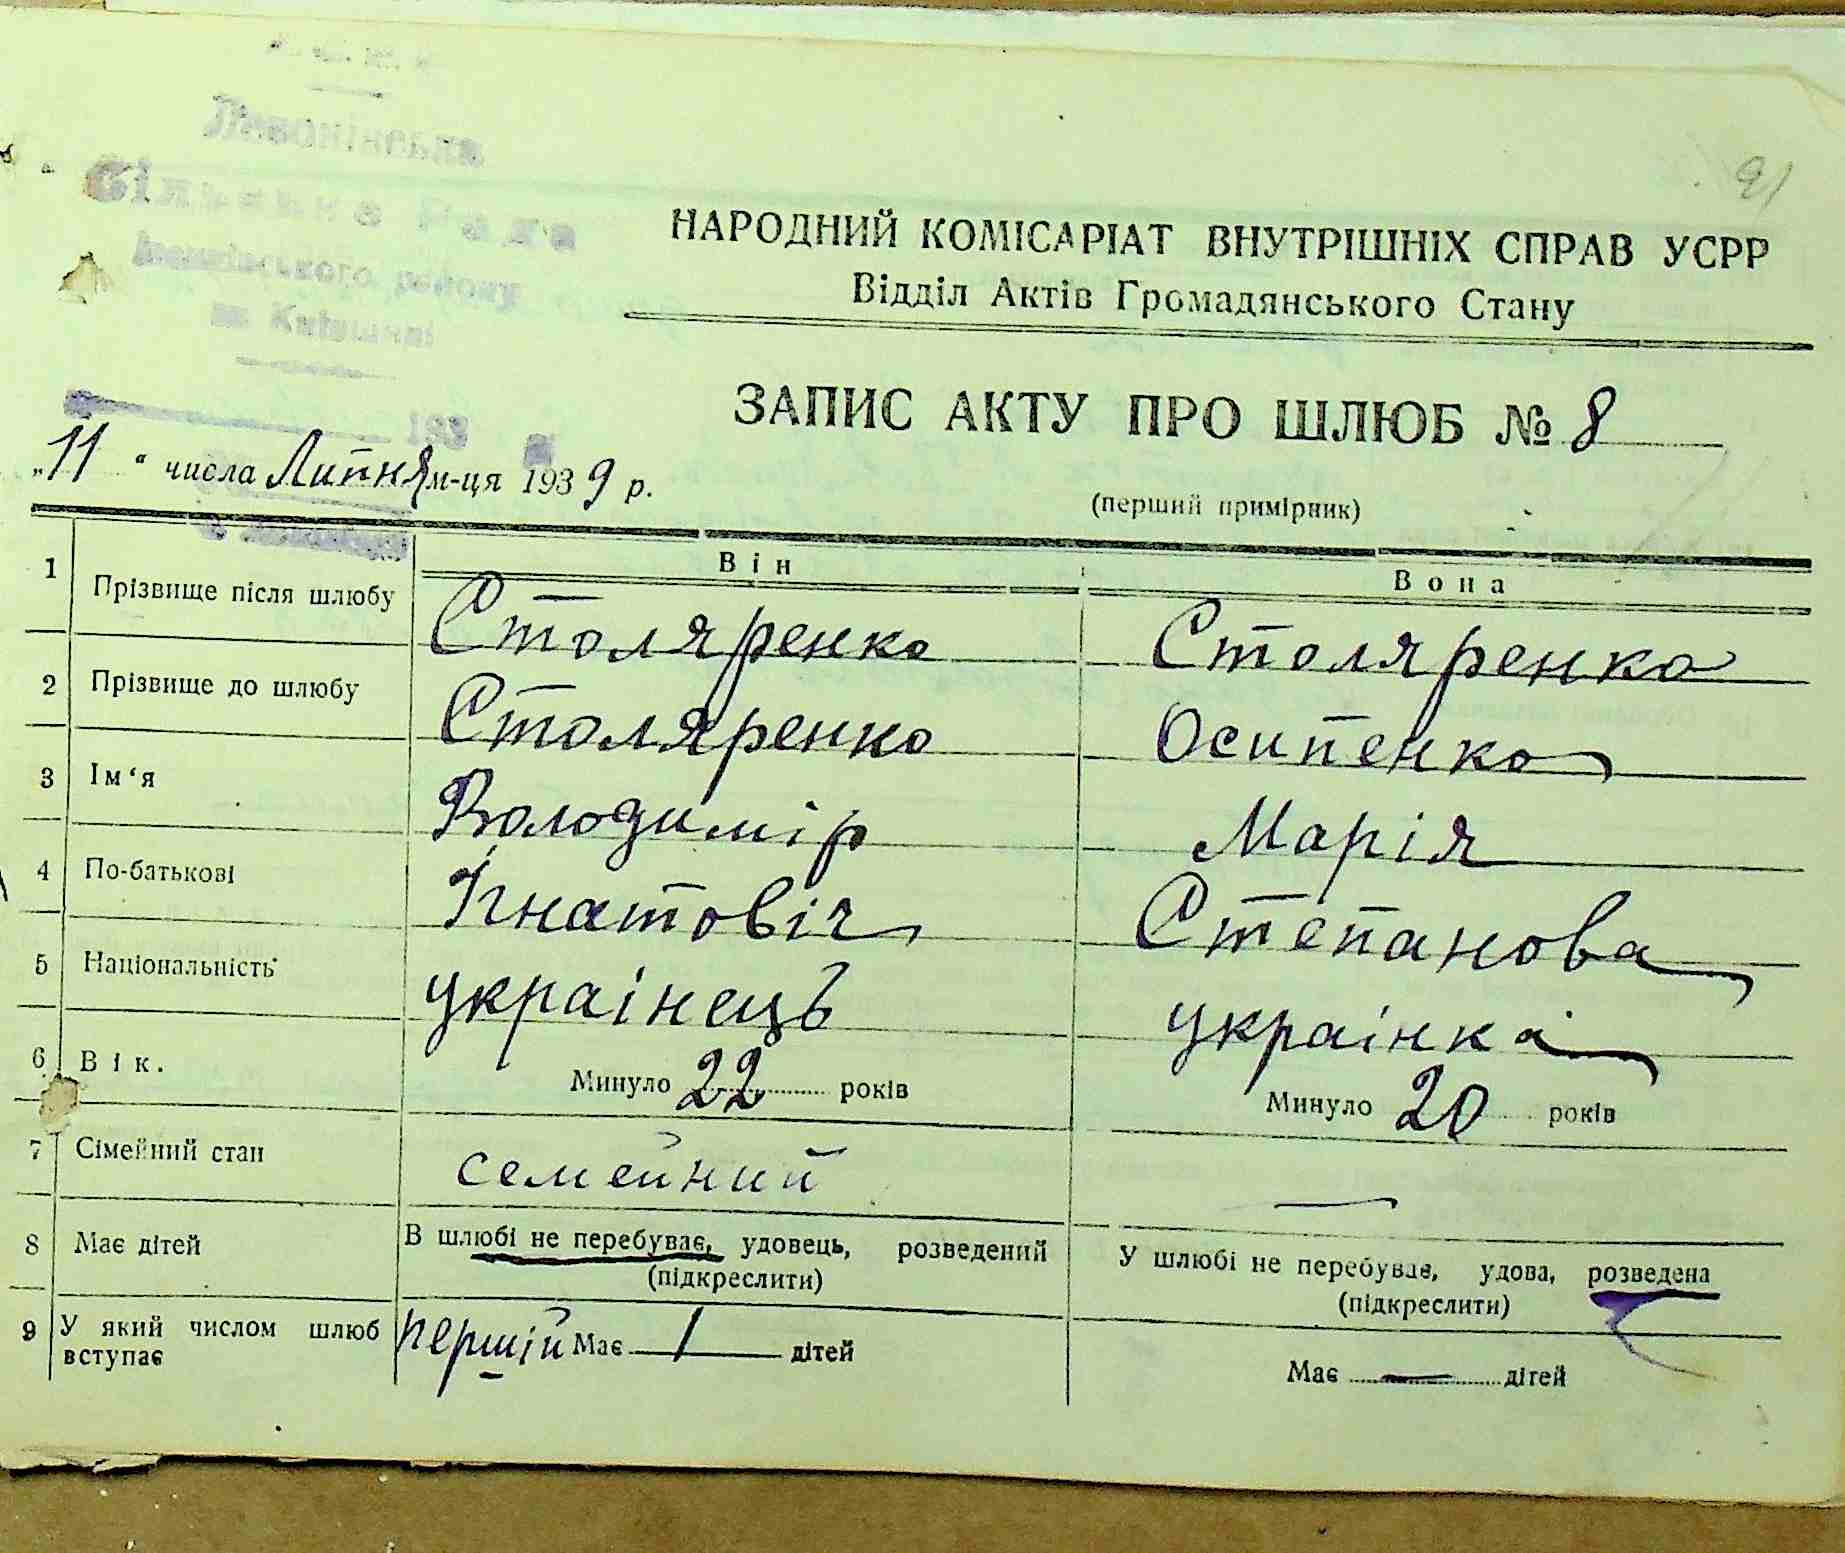 91
Сільська Рада
району
на Київщині
193
НАРОДНИЙ КОМІСАРІАТ ВНУТРІШНІХ СПРАВ УСРР
Відділ Актів Громадянського Стану
ЗАПИС АКТУ ПРО ШЛЮБ № 8
„11“ числа Липня м-ця 1939 р.
(перший примірник)
Він Вона
1 Прізвище після шлюбу Столяренко Столяренко
2 Прізвище до шлюбу Столяренко Осипенко
3 Ім‘я Володимір Марія
4 По-батькові Ігнатовіч Степанова
5 Національність украінець украінка
6 Вік. Минуло 22 років Минуло 20 років
7 Сімейний стан семейний —
8 Має дітей В шлюбі не перебуває, удовець, розведений У шлюбі не перебуває, удова, розведена
(підкреслити) (підкреслити)
9 У який числом шлюб вступає першій Має 1 дітей Має — дітей